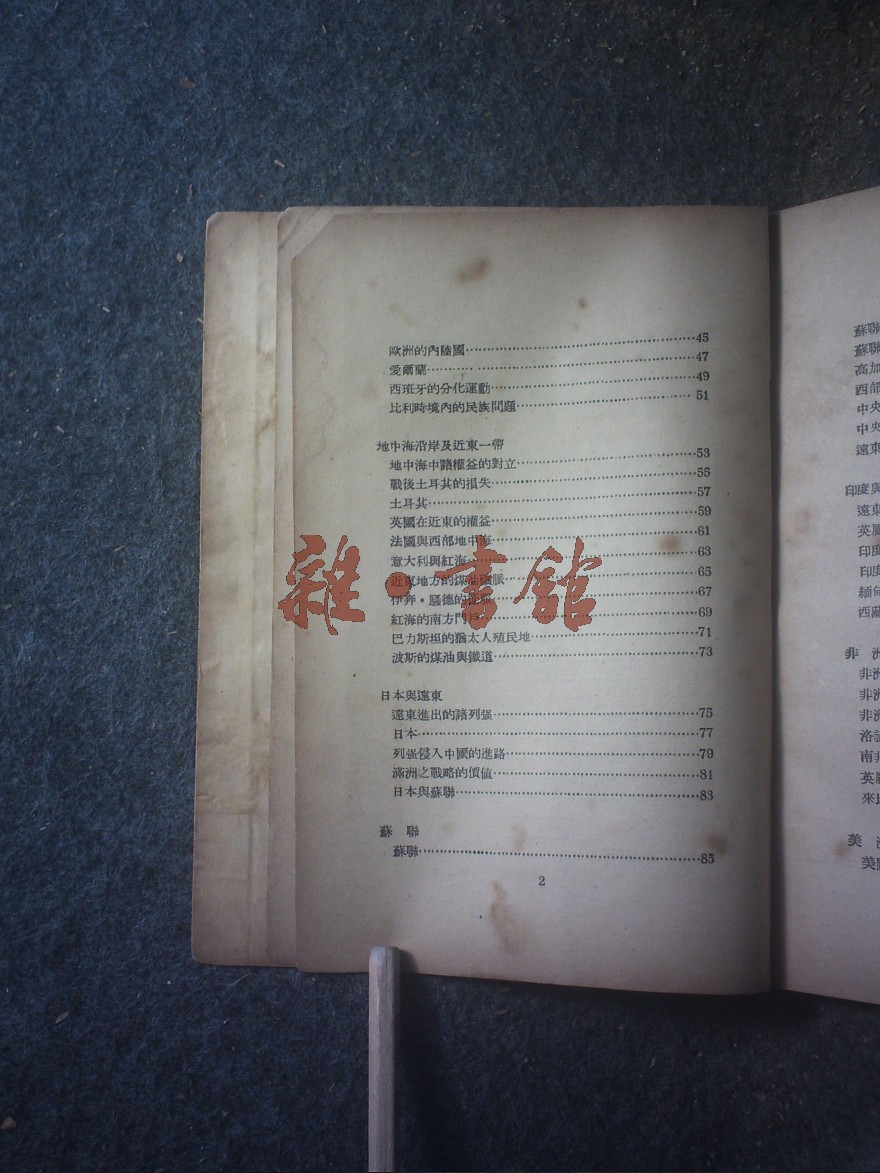 歐洲的內陸國 45
愛爾蘭 47
西班牙的分化運動 49
比利時境內的民族問題 51
地中海沿岸及近東一帶
地中海中諸權益的對立 53
戰後土耳其的損失 55
土耳其 57
英國在近東的權益 59
法國與西部地中海 61
意大利與紅海 63
近東地方的煤油礦脈 65
伊弈·騷德的 67
紅海的南方門戶 69
巴力斯坦的猶太人殖民地 71
波斯的煤油與鐵道 73
日本與遠東
遠東進出的諸列强 75
日本 77
列强侵入中國的進路 79
滿洲之戰略的價值 81
日本與蘇聯 83
蘇聯
蘇聯 85
2
雜·書館
蘇聯
蘇聯
高加
西部
中央
中央
遠東
印度與
遠東
英屬
印度
印度
緬甸
西藏
非洲
非洲
非洲
非洲
南非
英屬
來比
美洲
美國